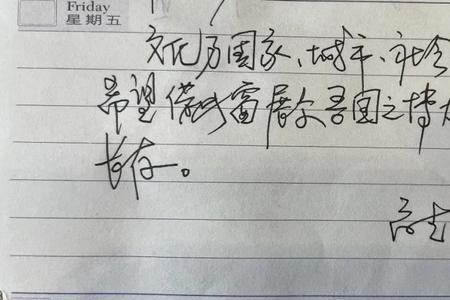 Friday
星期五
文化乃国家、城市、社会
希望借 展 吾国之博
长存。